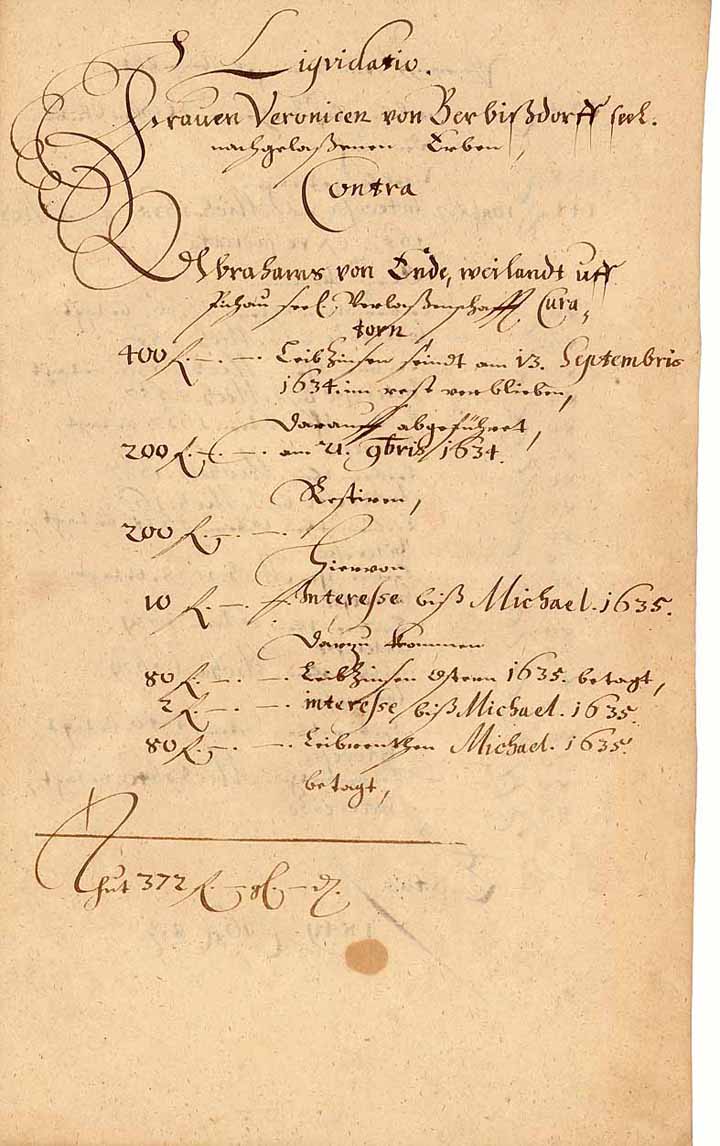 Liqvidatio.
Frauen Veronicen von Berbißdorff seel.
nachgelaßenen Erben,
Contra
Abrahams von Ende, weilandt uff
seel. Verlaßenschafft Cura-
torn
400 f. –. –. Leibzinsen seindt am 13. Septembris
1634. im rest verblieben,
Darauff abgeführet,
200 f. –. –. am 21. 9bris 1634.
Restiren,
200 f. –. –.
Hiervon
10 f. –. –. Interesse biß Michael. 1635.
Darzu kommen
80 f. –. –. Leibzinsen Ostern 1635. betagt,
2 f. –. –. interesse biß Michael. 1635.
80 f. –. –. Leibrenthen Michael. 1635.
betagt,
Thut 372 f. – gl. – d.